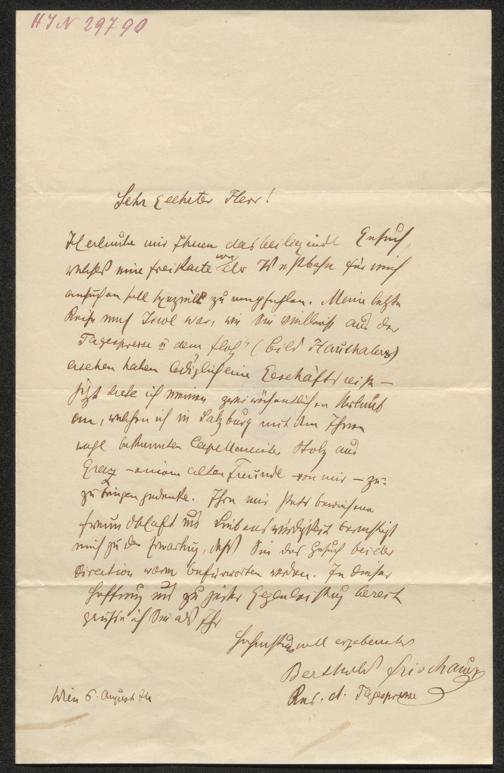 HJN 29790
Sehr geehrter Herr!
Ich erlaube mir Ihnen das beiliegende Gesuch,
welches eine Freikarte der Westbahn für mich
zu empfehlen. Meine letzte
Reise nach Tirol war, wie Sie vielleicht aus der
Tagespresse u dem „Floh“ (Bild Hauthalers)
ersehen haben lediglich eine Geschäftsreise –
jetzt trete ich meinen zweiwöchentlichen Urlaub
an, welchen ich in Salzburg mit dem Ihnen
wohl bekannten Capellmeister Stolz aus
Graz – einem alten Freunde von mir – zu-
zubringen gedenke. Ihre mir stets bewiesene
Freundschaft und Liebenswürdigkeit berechtigt
mich zu der Erwartung, daß Sie das Gesuch bei der
Direction warm befürworten werden. In dieser
Hoffnung und zu jeder Gegenleistung bereit
grüße ich Sie als Ihr
hochachtungsvoll ergebenster
Berthold Frischauer
Red. d. Tagespresse
Wien 6. August